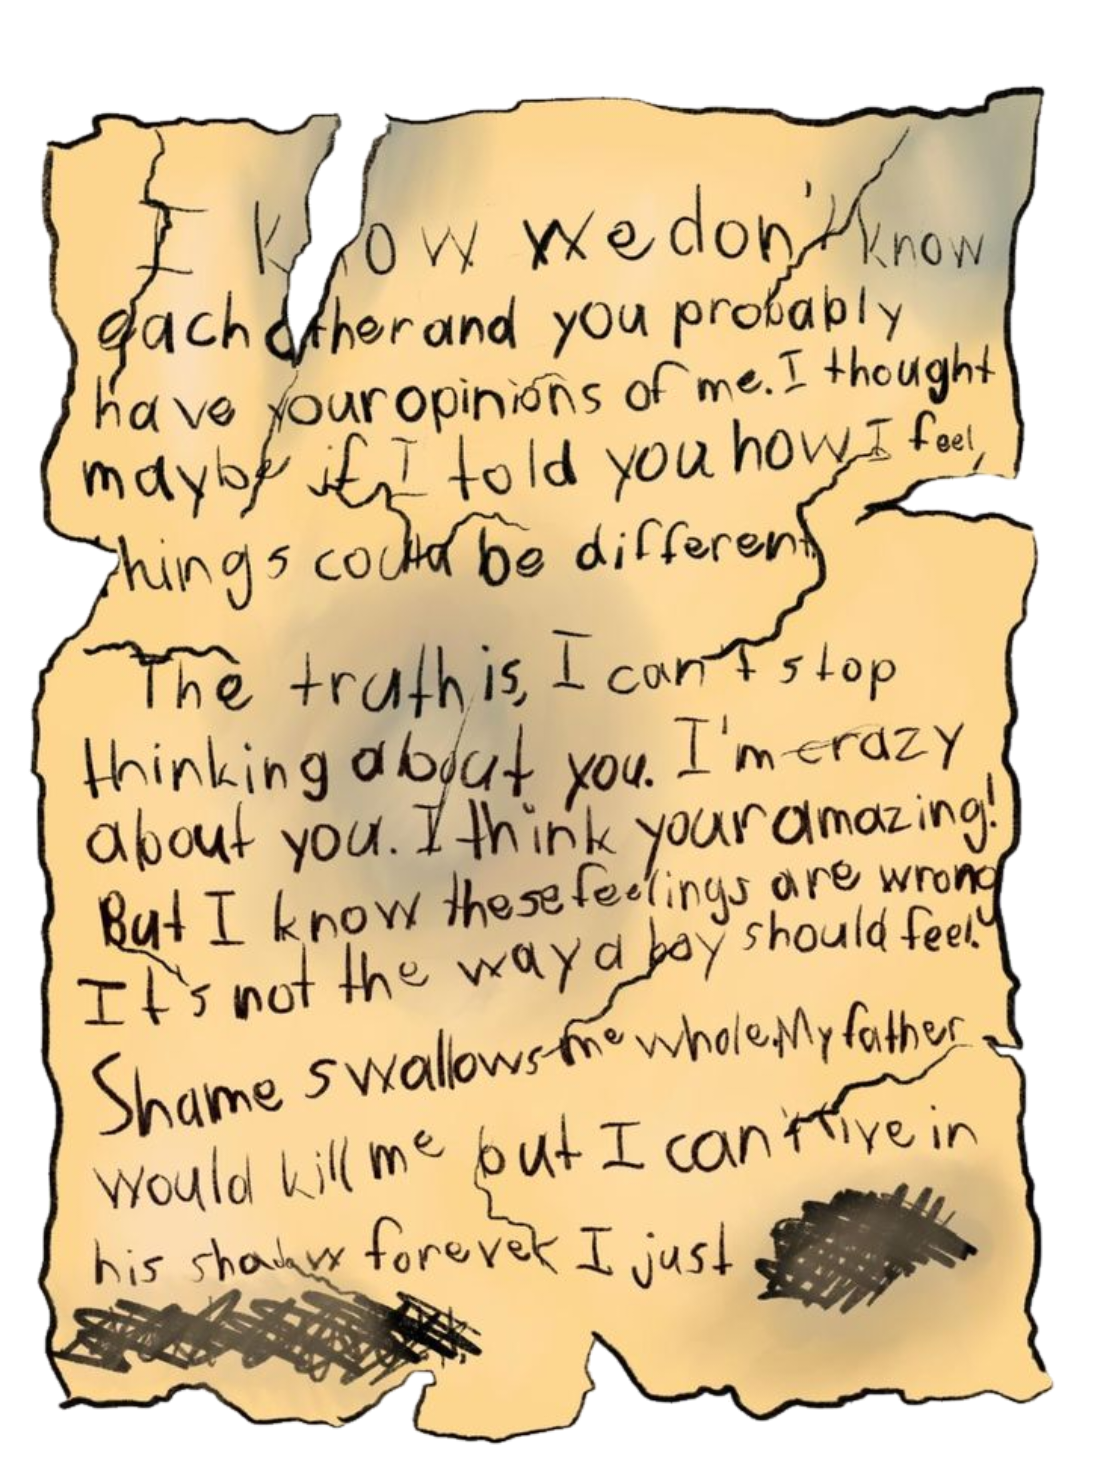 I know we don't know
each other and you probably
have your opinions of me. I thought
maybe if I told you how I feel,
things could be different
The truth is, I can't stop
thinking about you. I'm crazy
about you. I think your amazing!
But I know these feelings are wrong
It's not the way a boy should feel.
Shame swallows me whole. My father
would kill me but I can't live in
his shadow forever I just